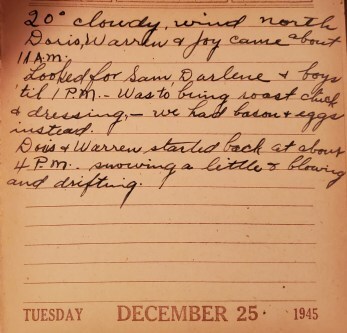 20° cloudy, wind north
Doris, Warren & Joy came about
11 A.M.
Looked for Sam, Darlene & boys
'til 1 P.M. - Was to bring roast chick
& dressing, - we had bacon & eggs
instead.
Doris & Warren started back at about
4 P.M. snowing a little & blowing
and drifting.
TUESDAY DECEMBER 25 · 1945